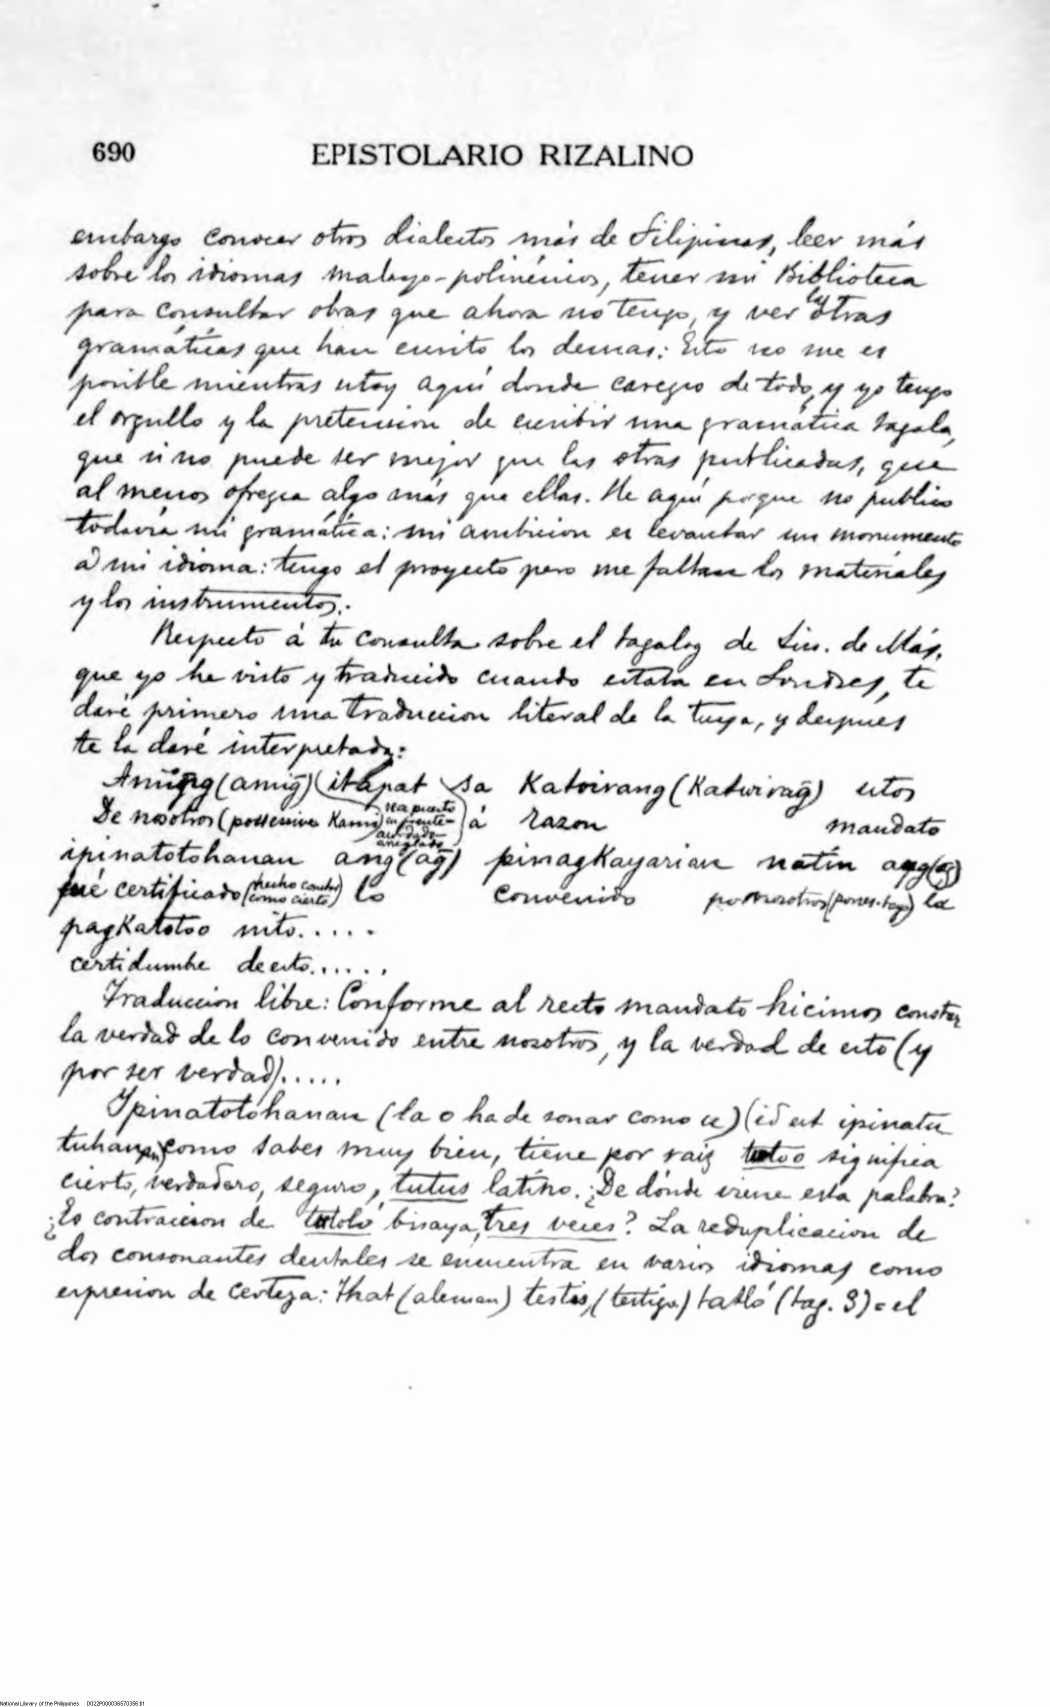 690
EPISTOLARIO RIZALINO
embargo conocer otros dialectos más de Filipinas, leer más
sobre los idiomas malayo-polinésicos, tener mi Biblioteca
para consultar obras que ahora no tengo, y ver las otras
gramáticas que han escrito los demas: Esto no me es
posible mientras estoy aquí donde carezco de todo, y yo tengo
el orgullo y la pretension de escribir una gramática tagala,
que si no puede ser mejor que las otras publicadas, que
al menos ofrezca algo más que ellas. He aquí porque no publico
todavía mi gramática: mi ambicion es levantar un monumento
á mi idioma: tengo el proyecto pero me faltan los materiales
y los instrumentos.
Respecto á tu consulta sobre el tagalog de Sin. de Más,
que yo he visto y traducido cuando estaba en Londres, te
daré primero una traduccion literal de la tuya, y despues
te la daré interpretada:
(amig̃) (itapat sa Katoirang (Katwirag̃) utos
De nosotros (possessive Kami) sea puesto en frente á razon mandato
ipinatotohanan ang (ag̃) pinagkayarian natin ang (ag̃)
fué certificado (hecho constar como cierto) lo convenido por nosotros la
pagkatotoo nito.....
certidumbre de esto......
Traduccion libre: Conforme al recto mandato hicimos constar
la verdad de lo convenido entre nosotros, y la verdad de esto (y
por ser verdad).....
Ypinatotohanan (la o ha de sonar como u) (id est ipinatu
tuhanan) como sabes muy bien, tiene por raiz totoo significa
cierto, verdadero, seguro, tutus latino. ¿De dónde viene esta palabra?
¿Es contraccion de totoló bisaya, tres veces? La reduplicacion de
dos consonantes dentales se encuentra en varios idiomas como
expresion de certeza: That (aleman) testis, (testigo) tatló (tag. 3) = el
National Library of the Philippines